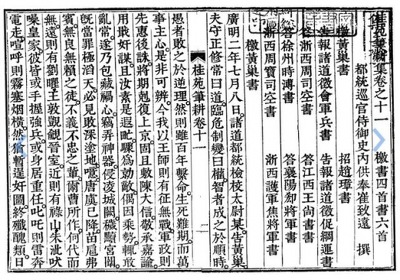 桂苑筆耕集卷之十一 檄書四首書六首
都統巡官侍御史內供奉崔致遠 撰
檄黃巢書 招趙璋書
告報諸道徵會軍兵書 告報諸道徵促綱運書
答徐州時溥書 答江西王尚書書
答浙西周司空書 答襄陽郄將軍書
浙西周寶司空書 浙西護軍焦將軍書
檄黃巢書
廣明二年七月八日諸道都統檢校太尉某告黃巢
夫守正修常曰道臨危制變曰權智者成之於順時
桂苑筆耕卷十一
愚者敗之於逆理然則雖百年繫命生死難期而萬
事主心是非可辨今我以王師則有征無戰軍政則
先惠後誅將期剋復上京固且敷陳大信敬承嘉諭
用戢奸謀且汝素是遐甿驟爲勍敵偶因乘勢輒敢
亂常遂乃包藏禍心竊弄神器侵凌城闕穢黷宮闈
旣當罪極滔天必見敗深塗地噫唐虞已降苗扈弗
賓無良無賴之徒不義不忠之輩爾曹所作何代而
無遠則有劉曜王敦覬覦晉室近則有祿山朱泚吠
噪皇家彼皆或手握強兵或身居重任叱吒則雷奔
電走喧呼則霧塞煙橫然猶暫逞奸圖終殲醜類日